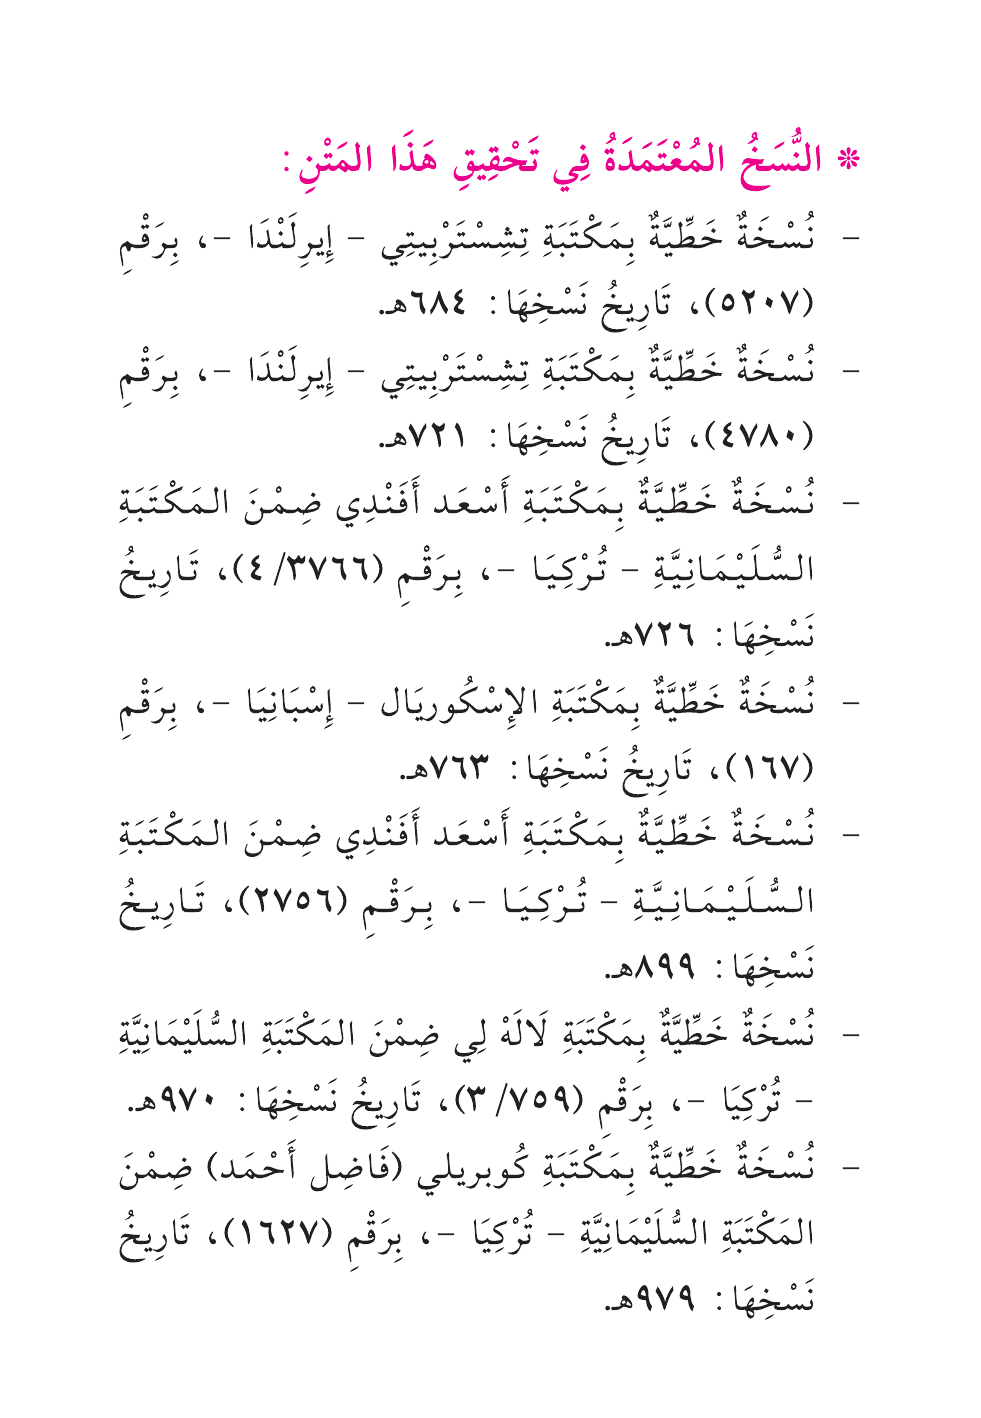 ❊ النُّسَخُ المُعْتَمَدَةُ فِي تَحْقِيقِ هَذَا المَتْنِ:
- نُسْخَةٌ خَطِّيَّةٌ بِمَكْتَبَةِ تِشِسْتَرْبِيتِي - إِيرِلَنْدَا -، بِرَقْمِ
(٥٢٠٧)، تَارِيخُ نَسْخِهَا: ٦٨٤هـ.
- نُسْخَةٌ خَطِّيَّةٌ بِمَكْتَبَةِ تِشِسْتَرْبِيتِي - إِيرِلَنْدَا -، بِرَقْمِ
(٤٧٨٠)، تَارِيخُ نَسْخِهَا: ٧٢١هـ.
- نُسْخَةٌ خَطِّيَّةٌ بِمَكْتَبَةِ أَسْعَد أَفَنْدِي ضِمْنَ المَكْتَبَةِ
السُّلَيْمَانِيَّةِ - تُرْكِيَا -، بِرَقْمِ (٣٧٦٦/ ٤)، تَارِيخُ
نَسْخِهَا: ٧٢٦هـ.
- نُسْخَةٌ خَطِّيَّةٌ بِمَكْتَبَةِ الإِسْكُورِيَال - إِسْبَانِيَا -، بِرَقْمِ
(١٦٧)، تَارِيخُ نَسْخِهَا: ٧٦٣هـ.
- نُسْخَةٌ خَطِّيَّةٌ بِمَكْتَبَةِ أَسْعَد أَفَنْدِي ضِمْنَ المَكْتَبَةِ
السُّلَيْمَانِيَّةِ - تُرْكِيَا -، بِرَقْمِ (٢٧٥٦)، تَارِيخُ
نَسْخِهَا: ٨٩٩هـ.
- نُسْخَةٌ خَطِّيَّةٌ بِمَكْتَبَةِ لَالَهْ لِي ضِمْنَ المَكْتَبَةِ السُّلَيْمَانِيَّةِ
- تُرْكِيَا -، بِرَقْمِ (٧٥٩/ ٣)، تَارِيخُ نَسْخِهَا: ٩٧٠هـ.
- نُسْخَةٌ خَطِّيَّةٌ بِمَكْتَبَةِ كُوبريلي (فَاضِل أَحْمَد) ضِمْنَ
المَكْتَبَةِ السُّلَيْمَانِيَّةِ - تُرْكِيَا -، بِرَقْمِ (١٦٢٧)، تَارِيخُ
نَسْخِهَا: ٩٧٩هـ.